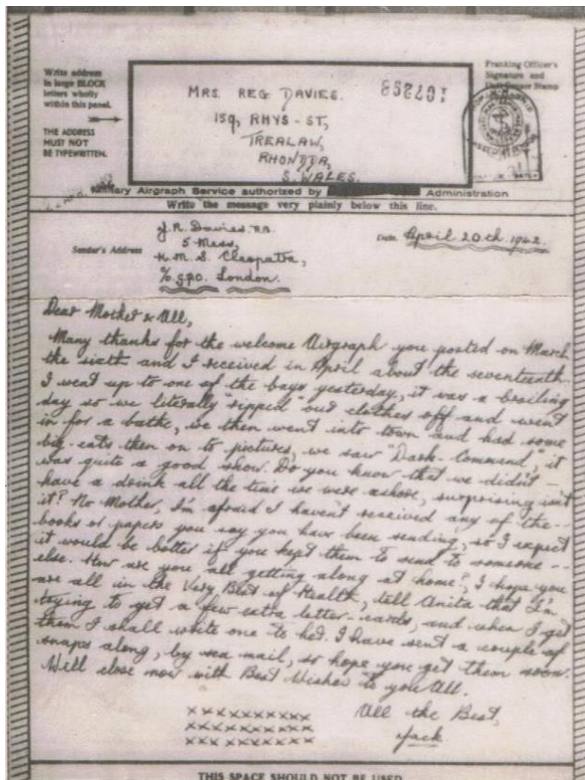 Write address
in large BLOCK
letters wholly
within this panel.
THE ADDRESS
MUST NOT
BE TYPEWRITTEN.
MRS. REG DAVIES.
159, RHYS-ST,
TREALAW,
RHONDDA,
S. WALES.
107258
Franking Officer's
Signature and
Stamp
Airgraph Service authorized by
Administration
Write the message very plainly below this line.
Sender's Address
J. R. Davies
5 Mess,
H. M. S. Cleopatra,
C/o G.P.O. London.
Date April 20th. 1942.
Dear Mother & All,
Many thanks for the welcome Airgraph you posted on March
the sixth and I received in April about the seventeenth.
I went up to one of the bays yesterday, it was a broiling
day so we literally "ripped" our clothes off and went
in for a bathe, we then went into town and had some
big-eats then on to pictures, we saw "Dark-Command", it
was quite a good show. Do you know that we didn't -
have a drink all the time we were ashore, surprising isn't
it? No Mother, I'm afraid I haven't received any of the --
books or papers you say you have been sending, so I expect
it would be better if you kept them to send to someone --
else. How are you all getting along at home?, I hope you
are all in the Very Best of Health, tell Anita that I'm
trying to get a few extra letter-cards, and when I get
them I shall write one to her. I have sent a couple of
snaps along, by sea mail, so hope you get them soon.
Will close now with Best Wishes to you All.
All the Best,
Jack
xxxxxxxxx
xxxxxxxxx
xxxxxxxxx
THIS SPACE SHOULD NOT BE USED